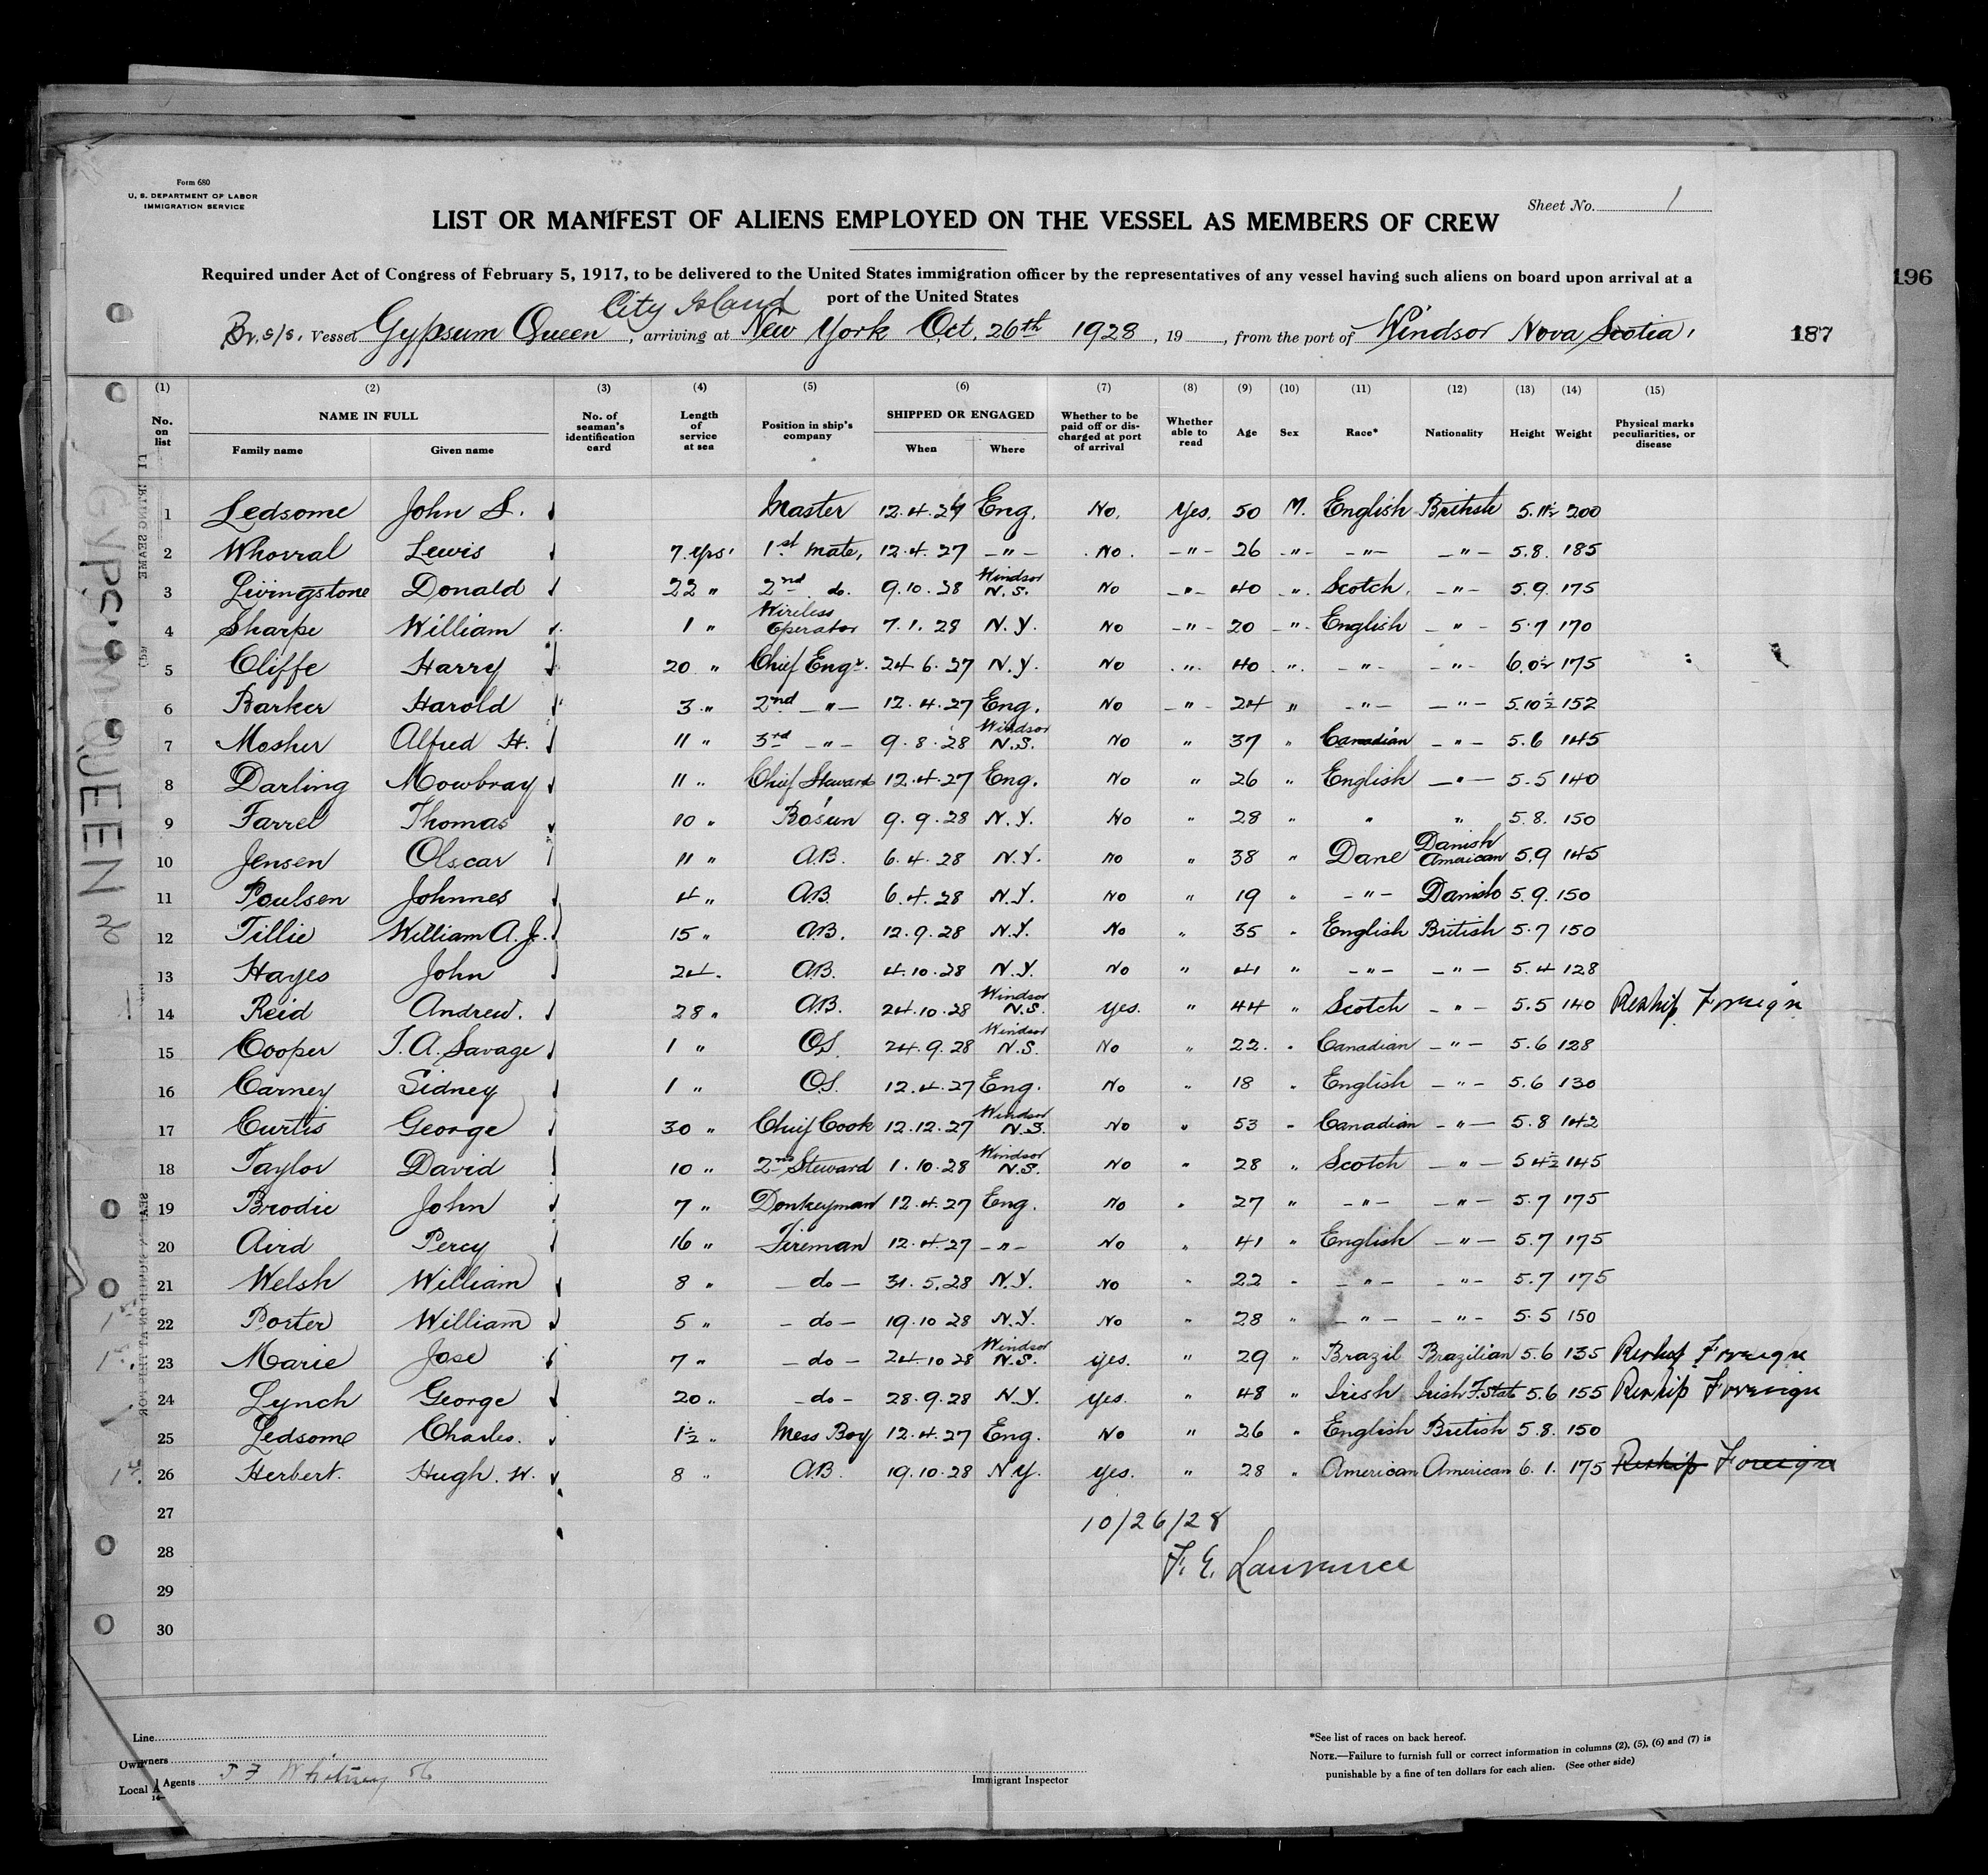 Form 680
U. S. DEPARTMENT OF LABOR
IMMIGRATION SERVICE
Sheet No. 1
LIST OR MANIFEST OF ALIENS EMPLOYED ON THE VESSEL AS MEMBERS OF CREW
Required under Act of Congress of February 5, 1917, to be delivered to the United States immigration officer by the representatives of any vessel having such aliens on board upon arrival at a
port of the United States
196
City Island
Br. s/s. Vessel Gypsum Queen, arriving at New York Oct. 26th 1928, 19 , from the port of Windsor Nova Scotia, 187
(1) (2) (3) (4) (5) (6) (7) (8) (9) (10) (11) (12) (13) (14) (15)
No. on list NAME IN FULL Family name Given name No. of seaman's identification card Length of service at sea Position in ship's company SHIPPED OR ENGAGED When Where Whether to be paid off or discharged at port of arrival Whether able to read Age Sex Race* Nationality Height Weight Physical marks peculiarities, or disease
1 Ledsome John S. Master 12.4.27 Eng. No. Yes. 50 M. English British 5.11½ 200
2 Whorral Lewis 7 yrs. 1st mate, 12.4.27 -"- No. -"- 26 -"- -"- -"- 5.8. 185
3 Livingstone Donald 22 " 2nd do. 9.10.28 Windsor N.S. No -"- 40 -"- Scotch. -"- 5.9. 175
4 Sharpe William 1 " Wireless Operator 7.1.28 N.Y. No -"- 20 -"- English -"- 5.7 170
5 Cliffe Harry 20 " Chief Engr. 24 6.27 N.Y. No " 40 " -"- -"- 6.0½ 175
6 Barker Harold 3 " 2nd -"- 12.4.27 Eng. No -"- 24 " -"- -"- 5.10½ 152
7 Mosher Alfred H. 11 " 3rd -"- 9.8.28 Windsor N.S. No " 37 " Canadian -"- 5.6 145
8 Darling Mowbray 11 " Chief Steward 12.4.27 Eng. No " 26 " English -"- 5.5 140
9 Farrel Thomas 10 " Bosun 9.9.28 N.Y. No " 28 " " " 5.8. 150
10 Jensen Olscar 11 " A.B. 6.4.28 N.Y. no " 38 " Dane Danish American 5.9 145
11 Poulsen Johnnes 4 " A.B. 6.4.28 N.Y. no " 19 " -"- Danish 5.9. 150
12 Tillie William A. J. 15 " A.B. 12.9.28 N.Y. No " 35 " English British 5.7 150
13 Hayes John 24 " A.B. 4.10.28 N.Y. No " 41 " -"- -"- 5.4 128
14 Reid Andrew. 28 " A.B. 24.10.28 Windsor N.S. yes. " 44 " Scotch -"- 5.5 140 Reship Foreign
15 Cooper T. A. Savage 1 " O.S. 24.9.28 Windsor N.S. No " 22. " Canadian -"- 5.6 128
16 Carney Sidney 1 " O.S. 12.4.27 Eng. No " 18 " English -"- 5.6 130
17 Curtis George 30 " Chief Cook 12.12.27 Windsor N.S. No " 53 " Canadian -"- 5.8 142
18 Taylor David 10 " 2nd Steward 1.10.28 Windsor N.S. No " 28 " Scotch -"- 5 4½ 145
19 Brodie John 7 " Donkeyman 12.4.27 Eng. No " 27 " -"- -"- 5.7 175
20 Aird Percy 16 " Fireman 12.4.27 -"- No " 41 " English -"- 5.7 175
21 Welsh William 8 " -do- 31.5.28 N.Y. No " 22 " -"- -"- 5.7 175
22 Porter William 5 " -do- 19.10 28 N.Y. No " 28 " -"- -"- 5.5 150
23 Marie Jose 7 " -do- 24 10 28 Windsor N.S. yes. " 29 " Brazil Brazilian 5.6 135 Reship Foreign
24 Lynch George 20 " -do- 28.9.28 N.Y. yes. " 48 " Irish Irish F. Stat 5.6 155 Reship Foreign
25 Ledsome Charles. 1½ " Mess Boy 12.4.27 Eng. No " 26 " English British 5.8. 150
26 Herbert. Hugh. W. 8 " A.B. 19.10.28 N.Y. Yes. " 28 " American American 6.1. 175 Reship Foreign
27
10/26/28
28
F. E. Laurence
29
30
GYPSUM QUEEN
Line
Owners
Local Agents J F Whitney
Immigrant Inspector
*See list of races on back hereof.
NOTE.—Failure to furnish full or correct information in columns (2), (5), (6) and (7) is
punishable by a fine of ten dollars for each alien. (See other side)